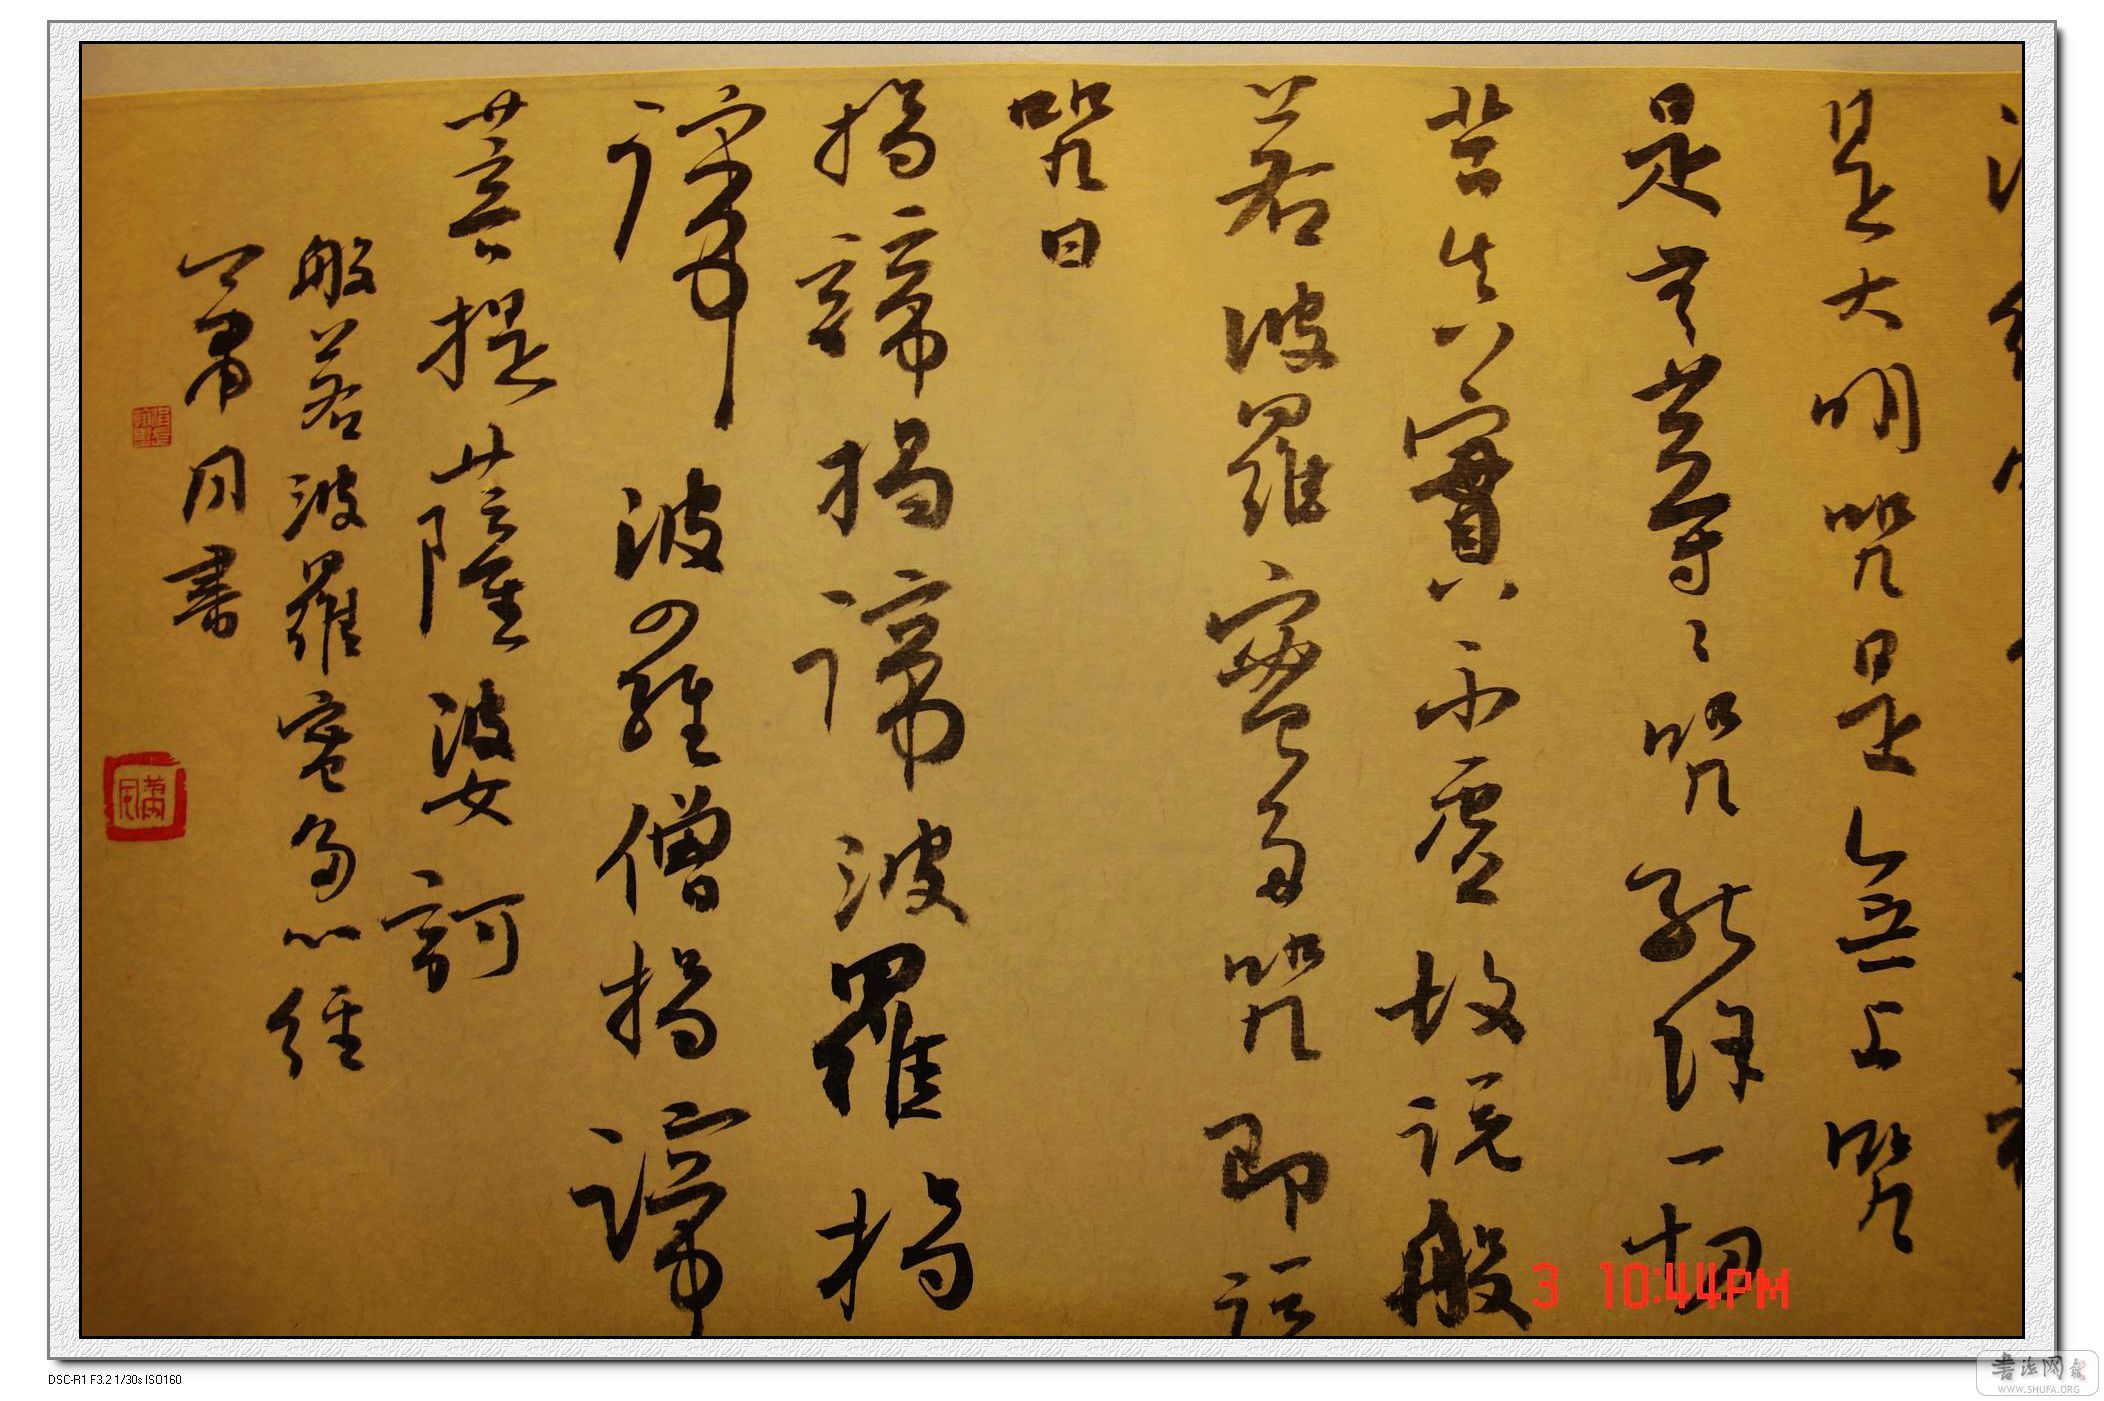 是大明咒是無上咒
是无等々咒能除一切
苦真實不虛故說般
若波羅蜜多咒即說
咒曰
揭諦揭諦波羅揭
諦波羅僧揭諦
菩提薩婆訶
般若波羅蜜多心經
蕭風書
蕭風
3 10:44PM
DSC-R1 F3.2 1/30s ISO160
书法网
WWW.SHUFA.ORG